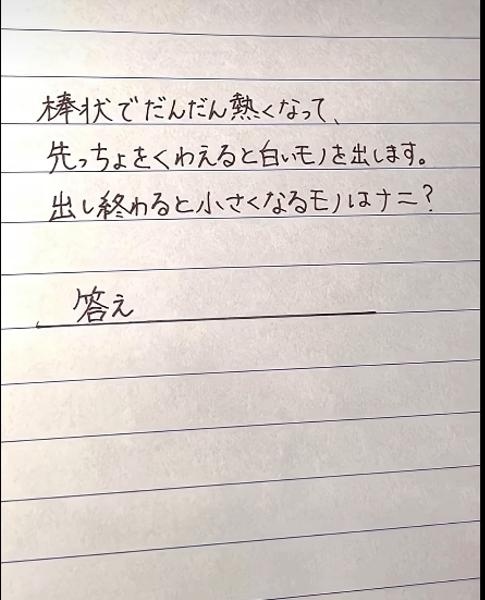 棒状でだんだん熱くなって、
先っちょをくわえると白いモノを出します。
出し終わると小さくなるモノはナニ?
答え